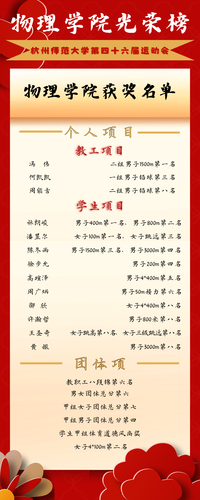 物理学院光荣榜
杭州师范大学第四十六届运动会
物理学院获奖名单
个人项目
教工项目
二组男子1500m第一名
何凯凯 一组男子铅球第三名
周能吉 二组男子铅球第八名
学生项目
男子400m第一名、男子800m第二名
女子100m第一名、女子跳远第三名
男子1500m第三名、男子3000m第四名
徐步光 男子200m第四名
男子4*400m第五名
周广炳 男子50m接力第六名
女子4*400m第八名
男子800米第八名
王圣奇 女子跳高第八名、女子三级跳远第八名
男子5000m第八名
团体项
教职工八段锦第六名
男女团体总分第六
甲组女子团体总分第七
甲组男子团体总分第四
学生甲组体育道德风尚奖
女子4*100m第二名